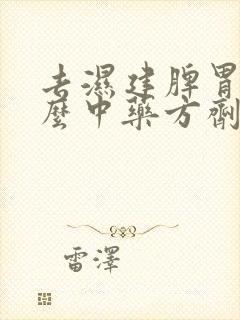 去濕建脾胃
麼中藥方劑
雷澤